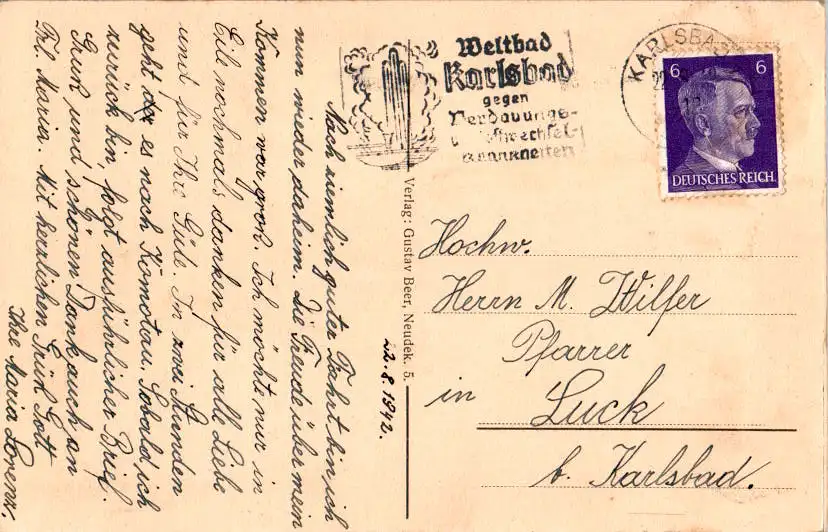 Nach ziemlich guter Fahrt bin ich
nun wieder daheim. Die Freude über mein
Kommen war groß. Ich möchte nur in
Eile nochmals danken für alle Liebe
und für Ihre Güte. In zwei Stunden
geht es nach Komotau. Sobald ich
zurück bin, folgt ausführlicher Brief.
Gruß und schönen Dank auch an
Frl. Maria. Mit herzlichen Grüß Gott
Ihre Maria Lorenz.
22.8.1942.
Verlag: Gustav Beer, Neudek. 5.
Weltbad
Karlsbad
gegen
Verdauungs-
KARLSBAD
6 6
DEUTSCHES REICH
Hochw.
Herrn M. Wilfer
Pfarrer
in Luck
b. Karlsbad.